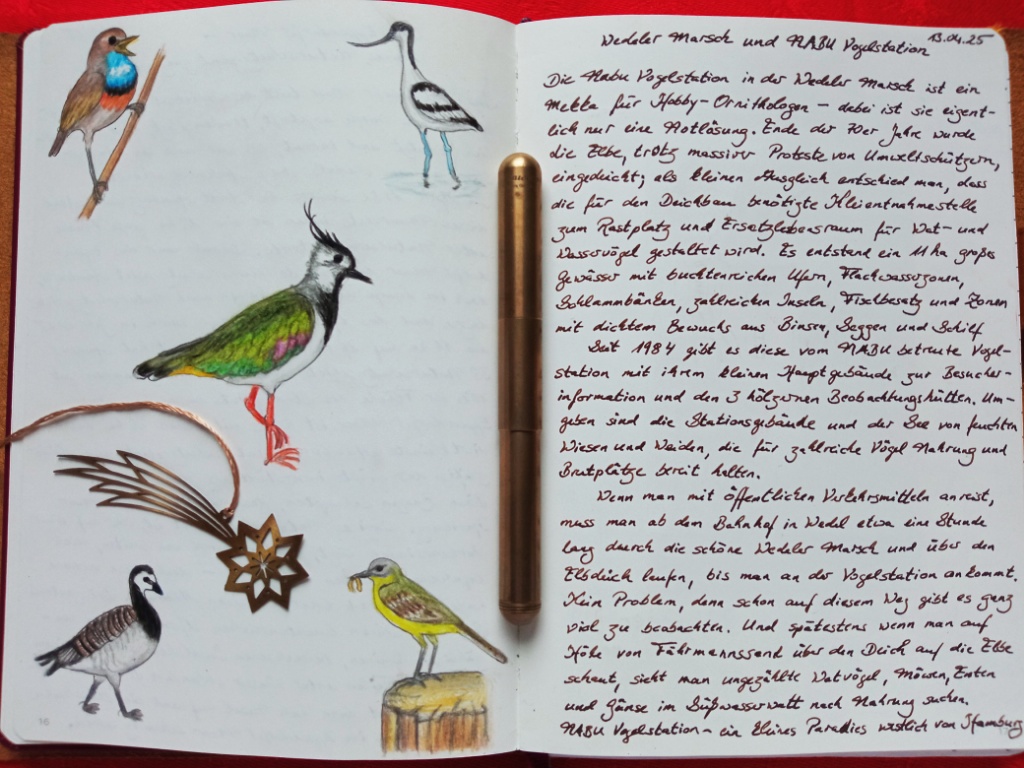 Wedeler Marsch und NABU Vogelstation
13.04.25
Die Nabu Vogelstation in der Wedeler Marsch ist ein
Mekka für Hobby-Ornithologen – dabei ist sie eigent-
lich nur eine Notlösung. Ende der 70er Jahre wurde
die Elbe, trotz massiver Proteste von Umweltschützern,
eingedeicht; als kleinen Ausgleich entschied man, dass
die für den Deichbau benötigte Kleientnahmestelle
zum Rastplatz und Ersatzlebensraum für Wat- und
Wasservögel gestaltet wird. Es entstand ein 11 ha großes
Gewässer mit buchtenreichen Ufern, Flachwasserzonen,
Schlammbänken, zahlreichen Inseln, Fischbesatz und Zonen
mit dichtem Bewuchs aus Binsen, Seggen und Schilf
Seit 1984 gibt es diese vom NABU betreute Vogel-
station mit ihrem kleinen Hauptgebäude zur Besucher-
information und den 3 hölzernen Beobachtungshütten. Um-
geben sind die Stationsgebäude und der See von feuchten
Wiesen und Weiden, die für zahlreiche Vögel Nahrung und
Brutplätze bereit halten.
Wenn man mit öffentlichen Verkehrsmitteln anreist,
muss man ab dem Bahnhof in Wedel etwa eine Stunde
lang durch die schöne Wedeler Marsch und über den
Elbdeich laufen, bis man an der Vogelstation ankommt.
Kein Problem, denn schon auf diesem Weg gibt es ganz
viel zu beobachten. Und spätestens wenn man auf
Höhe von Fährmannssand über den Deich auf die Elbe
schaut, sieht man ungezählte Watvögel, Möwen, Enten
und Gänse im Süßwasserwatt nach Nahrung suchen.
NABU Vogelstation – ein kleines Paradies westlich von Hamburg
16